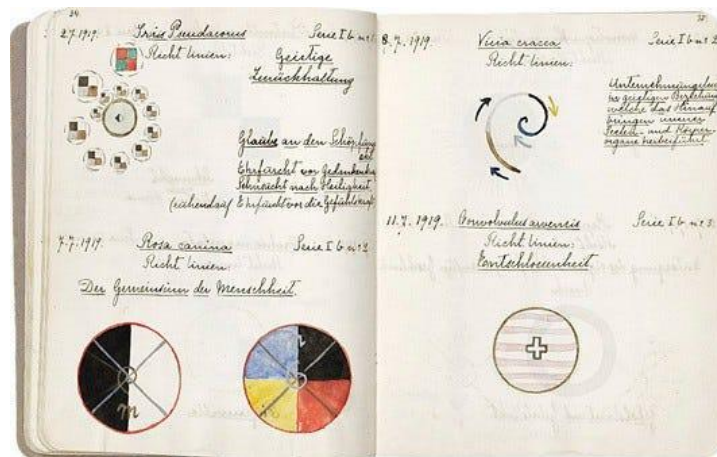 34.
2.7.1919. Iris Pseudacorus Serie I b nr 1.
Richt linien: Geistige
Zurückhaltung
Glaube an den Schöpfung
Ehrfurcht vor Gedanken
Sehnsucht nach Heiligkeit
Ehrfurcht vor die Gefühlskraft
7.7.1919. Rosa canina Serie I b nr 2.
Richt linien:
Der Gemeinsinn der Menschheit.
8.7.1919. Vicia cracca Serie I b nr 2
Richt linien:
welche das Hinauf
unserer
Seelen- und Körper
organe herbeiführt
11.7.1919. Convolvulus arvensis Serie I b nr 3.
Richt linien:
Entschlossenheit.